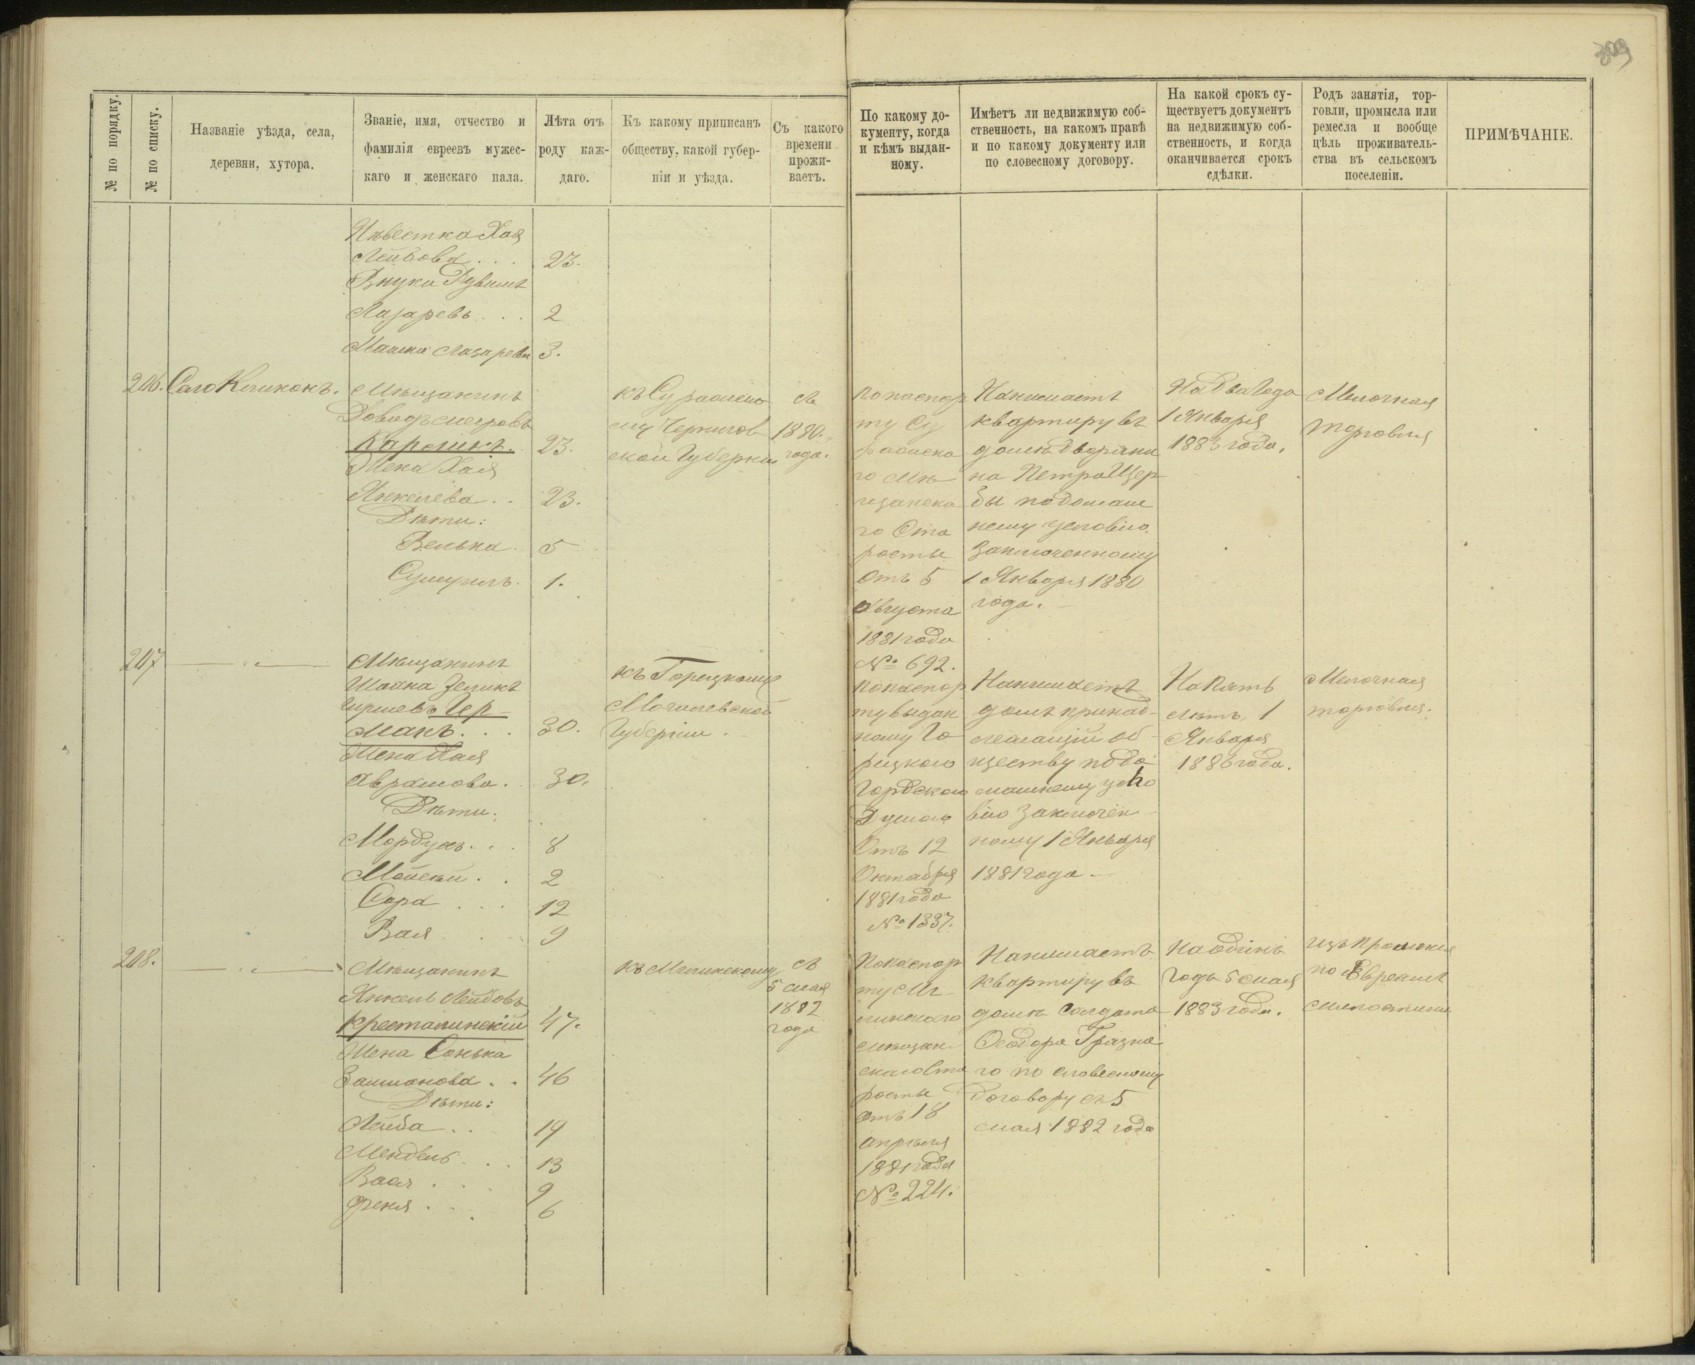 309
№ по порядку.
№ по списку.
Названіе уѣзда, села,
деревни, хутора.
Званіе, имя, отчество и
фамилія евреевъ мужес-
каго и женскаго пала.
Лѣта отъ
роду каж-
даго.
Къ какому приписанъ
обществу, какой губер-
ніи и уѣзда.
Съ какого
времени
прожи-
ваетъ.
По какому до-
кументу, когда
и кѣмъ выдан-
ному.
Имѣетъ ли недвижимую соб-
ственность, на какомъ правѣ
и по какому документу или
по словесному договору.
На какой срокъ су-
ществуетъ документъ
на недвижимую соб-
ственность, и когда
оканчивается срокъ
сдѣлки.
Родъ занятія, тор-
говли, промысла или
ремесла и вообще
цѣль проживатель-
ства въ сельскомъ
поселеніи.
ПРИМѢЧАНІЕ.
Невестка Хая
Лейбова . . . 23.
Внуки Рувимъ
Лазаревъ . . . 2
Лазарева 3.
206. Село
Мѣщанинъ
Довидъ
Кароликъ. 23.
Жена Хая
Янкелева . . 23.
Дѣти:
Велька 5
1.
къ
Чернигов
ской Губерніи
съ
1880
года.
по паспор
ту Су
го Мѣ
щанска
го Ста
росты
отъ 5
Августа
1881 года
№ 692.
Нанимаетъ
квартиру въ
домѣ Дворяни
на Петра Щер
бы по домаш
нему условію
заключенному
1 Января 1880
года.
На два года
1 Января
1883 года.
Мелочная
торговля
207
Мѣщанинъ
Шайка Зеликъ
Гиршевъ Чер-
манъ . . . 30.
Жена Хая
Абрамова . 30.
Дѣти:
Мордухъ . . . 8
Мовсей . . 2
Сора . . . 12
Вая 9
къ Горецкому
Могилевской
Губерніи .
по паспор
ту выдан
ному Го
рецкого
Городскою
Думою
Отъ 12
Октября
1881 года
№ 1337.
Нанимаетъ
домъ принад-
лежащій об-
ществу по до
машнему усло
вію заключен
ному 1 Января
1881 года
На пять
лѣтъ 1
Января
1886 года.
Мелочная
торговля.
208.
Мѣщанинъ
Янкель Лейбовъ
Крестапинскій 47.
Жена Сонька
Залмонова . . 46
Дѣти:
Лейба . . 19
Мендель . . . 13
Вася . . . 9
Феня . . . 6
къ Мглинскому
съ
5 мая
1882
года
По паспор
ту Мг
линского
мѣщан
ского Ста
росты
отъ 18
апрѣля
1881 года
№ 224.
Нанимаетъ
квартиру въ
домѣ солдата
Ѳедора Грязна
го по словесному
договору съ 5
мая 1882 года
На одинъ
годъ 5 мая
1883 года.